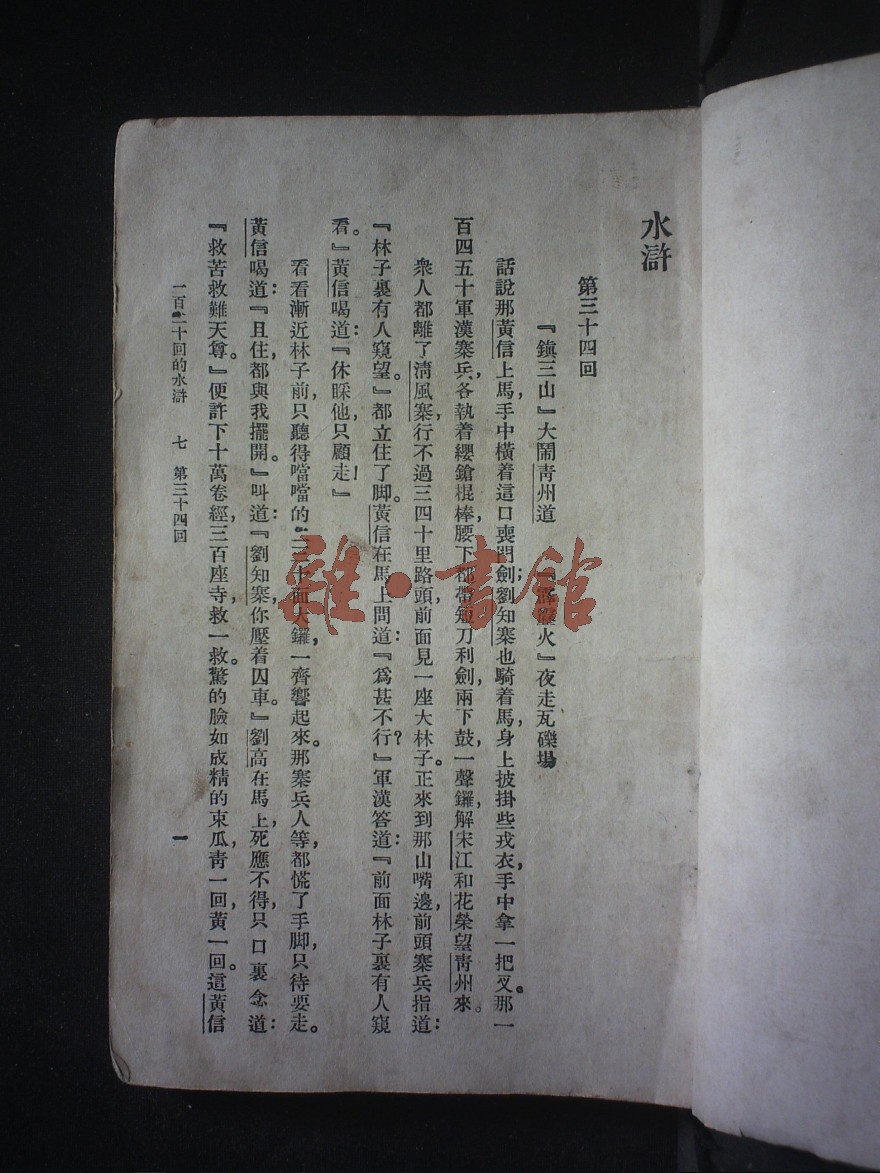 水滸
第三十四回
『鎮三山』大鬧青州道　『霹靂火』夜走瓦礫場
話說那黃信上馬，手中橫着這口喪門劍；劉知寨也騎着馬，身上披掛些戎衣，手中拿一把叉。那一
百四五十軍漢寨兵，各執着纓鎗棍棒，腰下都帶短刀利劍，兩下鼓，一聲鑼，解宋江和花榮望青州來。
衆人都離了清風寨，行不過三四十里路頭，前面見一座大林子。正來到那山嘴邊，前頭寨兵指道：
『林子裏有人窺望。』都立住了脚。黃信在馬上問道：『爲甚不行？』軍漢答道：『前面林子裏有人窺
看。』黃信喝道：『休睬他，只顧走！』
看看漸近林子前，只聽得噹噹的二三十面大鑼，一齊響起來。那寨兵人等，都慌了手脚，只待要走。
黃信喝道：『且住，都與我擺開。』叫道：『劉知寨，你壓着囚車。』劉高在馬上，死應不得，只口裏念道：
『救苦救難天尊。』便許下十萬卷經，三百座寺，救一救。驚的臉如成精的東瓜，青一回，黃一回。這黃信
一百二十回的水滸　七　第三十四回　一
雜·書館